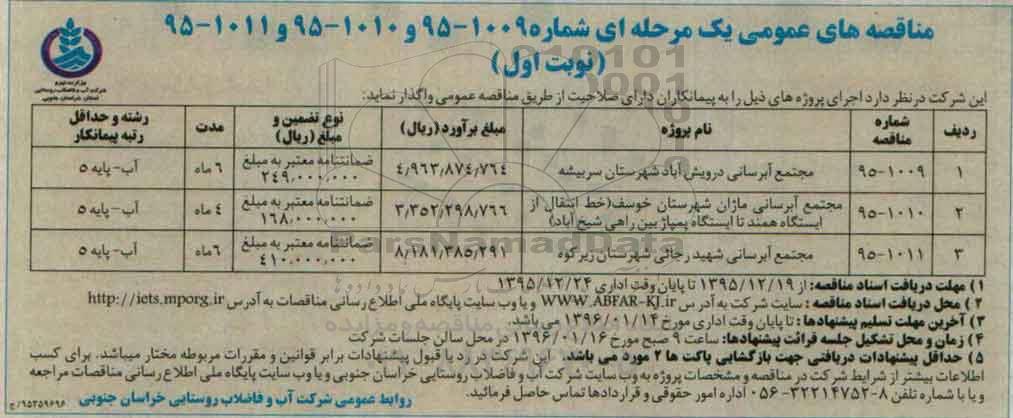 مناقصه های عمومی یک مرحله ای شماره ۱۰۰۹-۹۵ و ۱۰۱۰-۹۵ و ۱۰۱۱-۹۵
(نوبت اول)
وزارت نیرو
شرکت آب و فاضلاب روستایی
استان خراسان جنوبی
این شرکت در نظر دارد اجرای پروژه های ذیل را به پیمانکاران دارای صلاحیت از طریق مناقصه عمومی واگذار نماید:
ردیف شماره مناقصه نام پروژه مبلغ برآورد (ریال) نوع تضمین و مبلغ (ریال) مدت رشته و حداقل رتبه پیمانکار
۱ ۹۵-۱۰۰۹ مجتمع آبرسانی درویش آباد شهرستان سربیشه ۴,۹۶۳,۸۷۴,۷۶۴ ضمانتنامه معتبر به مبلغ ۲۴۹,۰۰۰,۰۰۰ ۶ ماه آب- پایه ۵
۲ ۹۵-۱۰۱۰ مجتمع آبرسانی ماژان شهرستان خوسف(خط انتقال از ایستگاه همند تا ایستگاه پمپاژ بین راهی شیخ آباد) ۳,۳۵۲,۲۹۸,۷۶۶ ضمانتنامه معتبر به مبلغ ۱۶۸,۰۰۰,۰۰۰ ۴ ماه آب- پایه ۵
۳ ۹۵-۱۰۱۱ مجتمع آبرسانی شهید رجائی شهرستان زیرکوه ۸,۱۸۱,۳۸۵,۲۹۱ ضمانتنامه معتبر به مبلغ ۴۱۰,۰۰۰,۰۰۰ ۶ ماه آب- پایه ۵
ParsNamadData
۱) مهلت دریافت اسناد مناقصه: از ۱۳۹۵/۱۲/۱۹ تا پایان وقت اداری ۱۳۹۵/۱۲/۲۴
۲) محل دریافت اسناد مناقصه: سایت شرکت به آدرس WWW.ABFAR-KJ.ir و یا وب سایت پایگاه ملی اطلاع رسانی مناقصات به آدرس http://iets.mporg.ir
۳) آخرین مهلت تسلیم پیشنهادها: تا پایان وقت اداری مورخ ۱۳۹۶/۰۱/۱۴ می باشد.
۴) زمان و محل تشکیل جلسه قرائت پیشنهادها: ساعت ۹ صبح مورخ ۱۳۹۶/۰۱/۱۶ در محل سالن جلسات شرکت
۵) حداقل پیشنهادات دریافتی جهت بازگشایی پاکت ها ۲ مورد می باشد. این شرکت در رد یا قبول پیشنهادات برابر قوانین و مقررات مربوطه مختار میباشد. برای کسب
اطلاعات بیشتر از شرایط شرکت در مناقصه و مشخصات پروژه به وب سایت شرکت آب و فاضلاب روستایی خراسان جنوبی و یا وب سایت پایگاه ملی اطلاع رسانی مناقصات مراجعه
و یا با شماره تلفن ۸-۳۲۲۱۴۷۵۲-۰۵۶ اداره امور حقوقی و قراردادها تماس حاصل فرمائید.
روابط عمومی شرکت آب و فاضلاب روستایی خراسان جنوبی
۹۵۲۵۹۶۹۶/ج